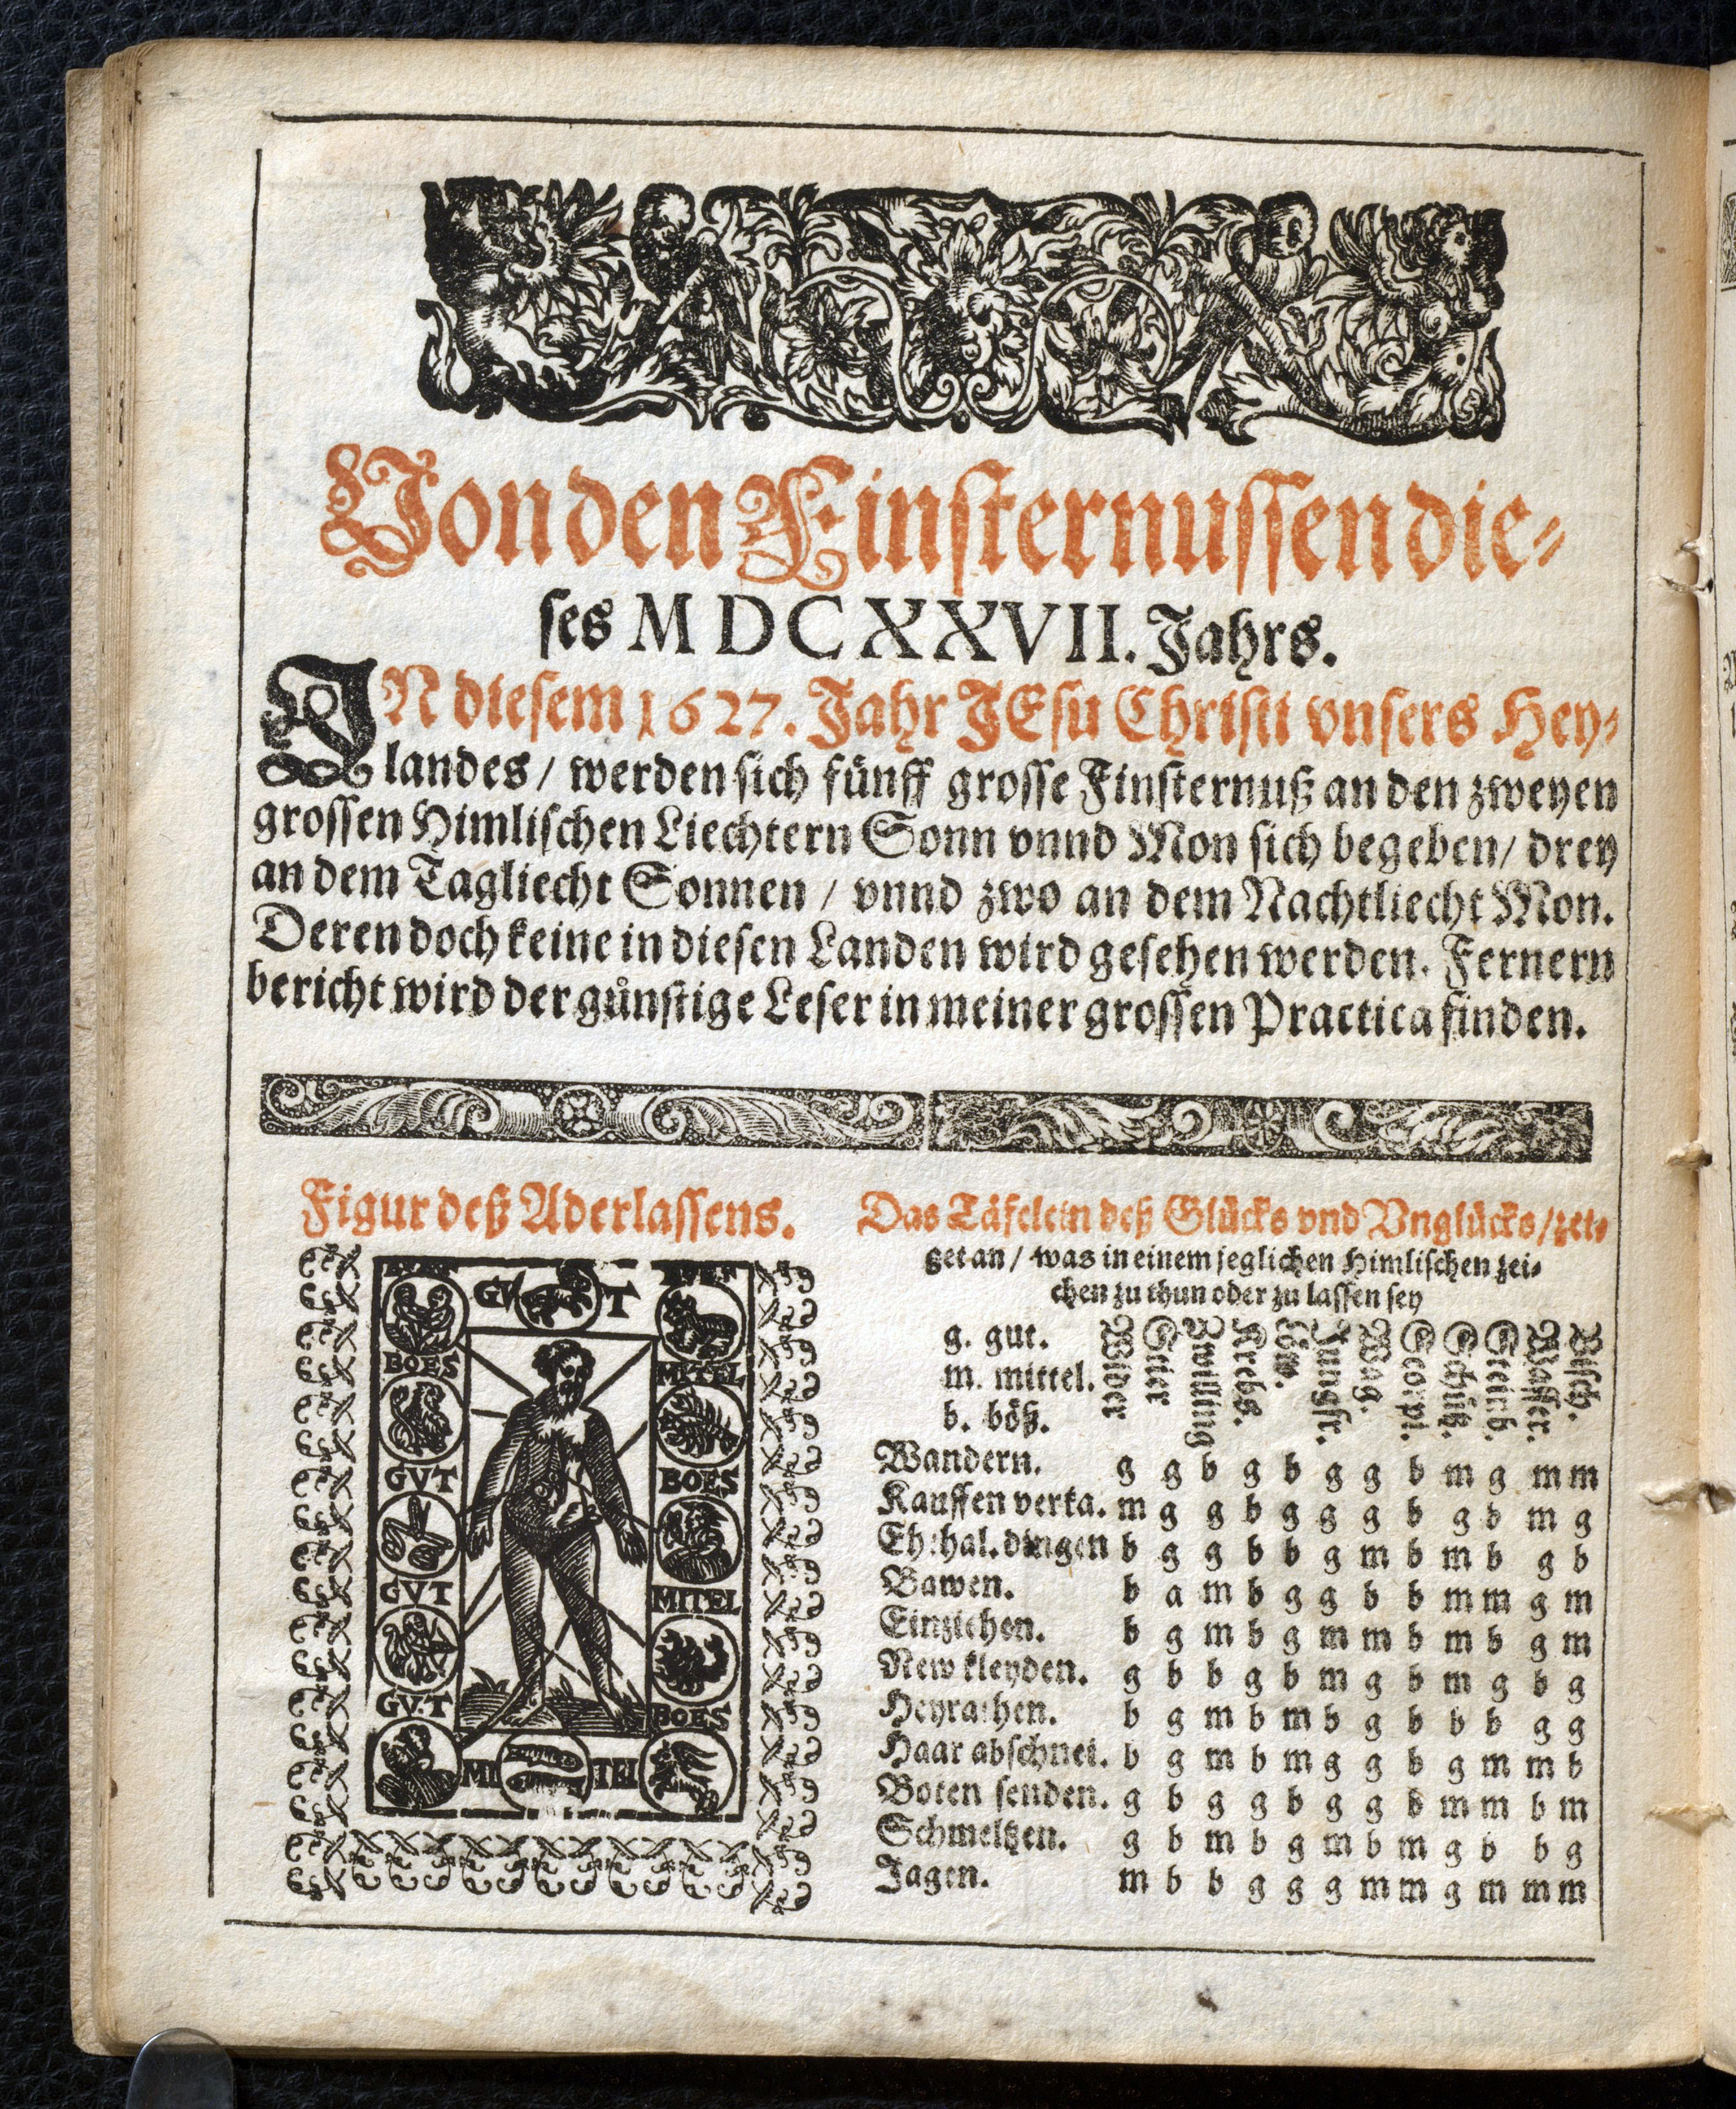 Von den Finsternussen die-
ses MDCXXVII. Jahrs.
IN diesem 1627. Jahr JEsu Christi vnsers Hey-
landes / werden sich fünff grosse Finsternuß an den zweyen
grossen Himlischen Liechtern Sonn vnnd Mon sich begeben / drey
an dem Tagliecht Sonnen / vnnd zwo an dem Nachtliecht Mon.
Deren doch keine in diesen Landen wird gesehen werden. Fernern
bericht wird der günstige Leser in meiner grossen Practica finden.
Figur deß Aderlassens.
GV T
BOES
MITEL
GVT
BOES
GVT
MITEL
GVT
BOES
MI TEL
Das Täfelein deß Glücks vnd Vnglücks / zei-
get an / was in einem jeglichen Himlischen zei-
chen zu thun oder zu lassen sey
g. gut.
m. mittel.
b. böß.
Wider Stier Zwilling Krebs. Löw. Jungfr. Wag. Scorpi. Schüß. Steinb. Wasser. Visch.
Wandern. g g b g b g g b m g m m
Kauffen verka. m g g b g g g b g b m g
Eh:hal. dingen b g g b b g m b m b g b
Bawen. b a m b g g b b m m g m
Einziehen. b g m b g m m b m b g m
New kleyden. g b b g b m g b m g b g
Heyrathen. b g m b m b g b b b g g
Haar abschnei. b g m b m g g b g m m b
Boten senden. g b g g b g g b m m b m
Schmeltzen. g b m b g m b m g b b g
Jagen. m b b g g g m m g m m m